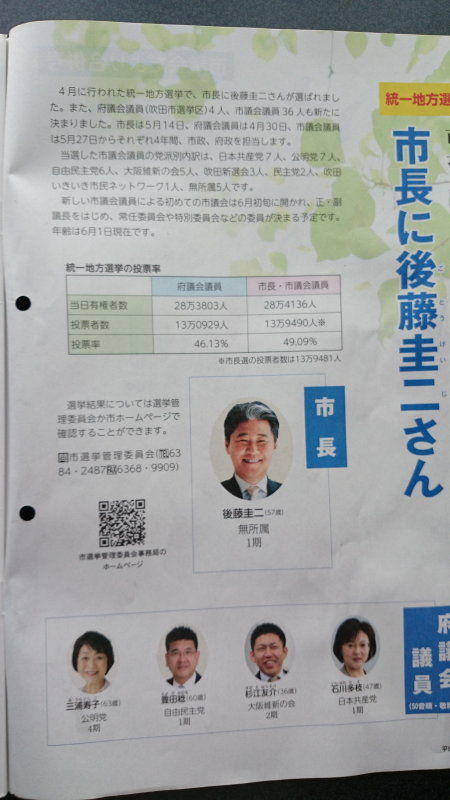 統一地方選
市長に後藤圭二さん
ごとうけいじ
4月に行われた統一地方選挙で、市長に後藤圭二さんが選ばれまし
た。また、府議会議員(吹田市選挙区)4人、市議会議員36人も新たに
決まりました。市長は5月14日、府議会議員は4月30日、市議会議員
は5月27日からそれぞれ4年間、市政、府政を担当します。
当選した市議会議員の党派別内訳は、日本共産党7人、公明党7人、
自由民主党6人、大阪維新の会5人、吹田新選会3人、民主党2人、吹田
いきいき市民ネットワーク1人、無所属5人です。
新しい市議会議員による初めての市議会は6月初旬に開かれ、正・副
議長をはじめ、常任委員会や特別委員会などの委員が決まる予定です。
年齢は6月1日現在です。
統一地方選挙の投票率
府議会議員 市長・市議会議員
当日有権者数 28万3803人 28万4136人
投票者数 13万0929人 13万9490人※
投票率 46.13% 49.09%
※市長選の投票者数は13万9481人
選挙結果については選挙管
理委員会か市ホームページで
確認することができます。
問市選挙管理委員会(電63
84・2487 FAX6368・9909)
市選挙管理委員会事務局の
ホームページ
市長
後藤圭二(57歳)
無所属
1期
府議会議員
(50音順・敬称
三浦寿子(63歳)
公明党
4期
豊田稔(60歳)
自由民主党
1期
杉江友介(36歳)
大阪維新の会
2期
石川多枝(47歳)
日本共産党
1期